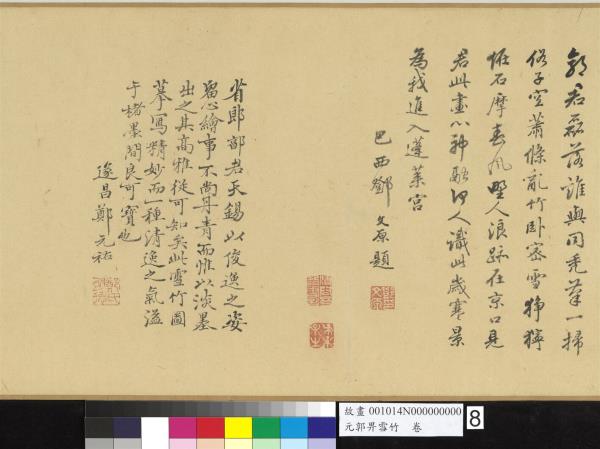 郭君磊落誰與同禿筆一掃
俗子空蕭條亂竹臥密雪猙獰
怪石摩春風野人浪跡在京口見
君此畫心神融何人識此歲寒景
為我進入蓬萊宮
巴西鄧文原題
省郎郭君天錫以俊逸之姿
留心繪事不尚丹青而惟以淡墨
出之其高雅從可知矣此雪竹圖
摹寫精妙而一種清逸之氣溢
于楮墨間良可寶也
遂昌鄭元祐
故畫 001014N000000000
元郭畀雪竹 卷
8